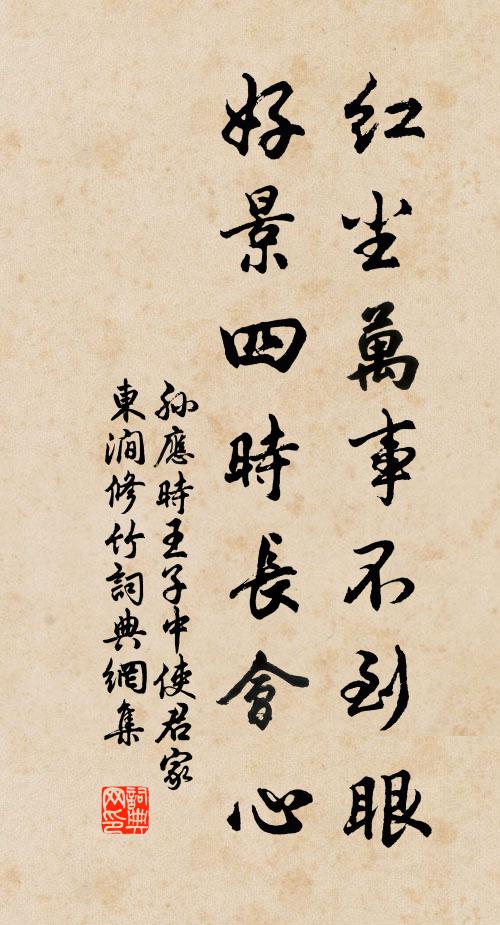 红尘萬事不到眼
好景四時長會心
孙應時王子中使君家
東澗修竹詞典網集
詞典
网印